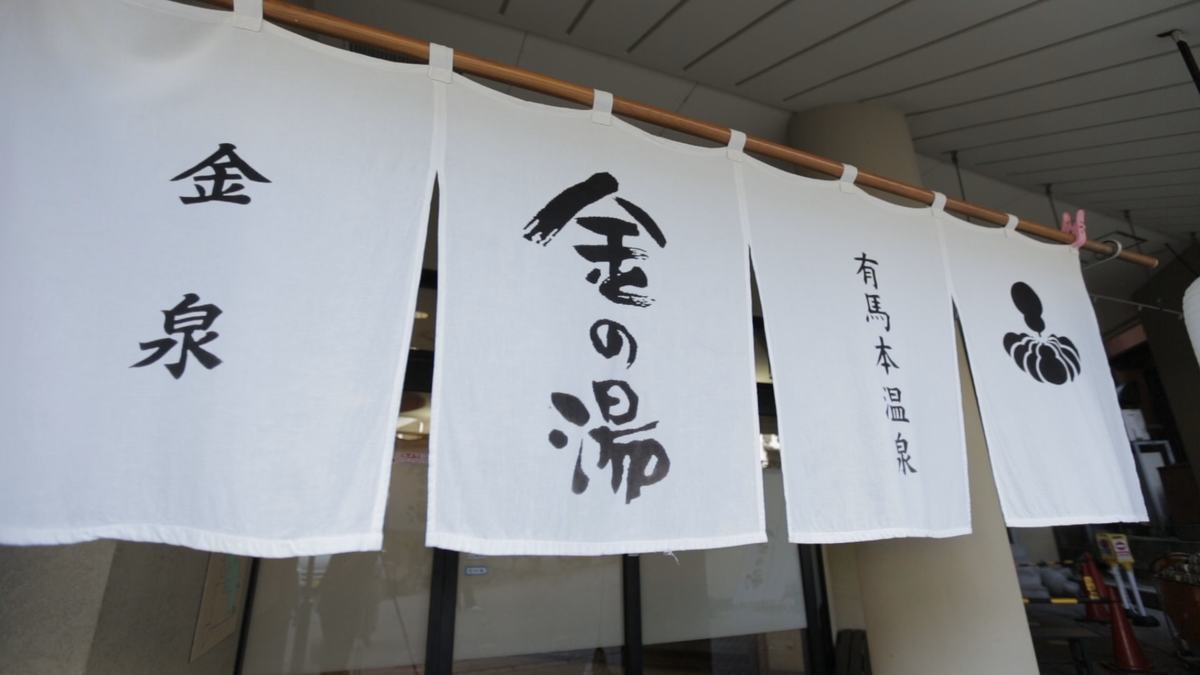 金泉
金の湯
有馬本温泉